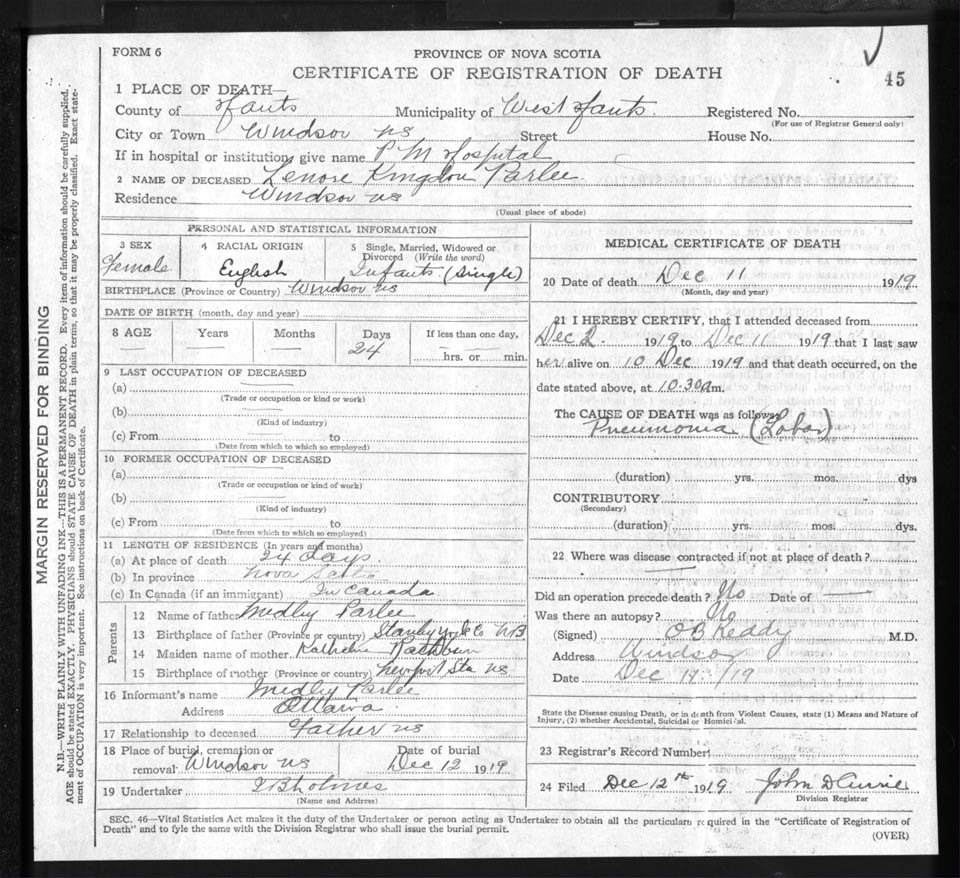 FORM 6
PROVINCE OF NOVA SCOTIA
CERTIFICATE OF REGISTRATION OF DEATH
45
1 PLACE OF DEATH—
County of Hants Municipality of West Hants. Registered No.
(For use of Registrar General only)
City or Town Windsor NS Street House No.
If in hospital or institution, give name P M Hospital
2 NAME OF DECEASED Lenore Kingdon Parlee.
Residence Windsor NS
(Usual place of abode)
PERSONAL AND STATISTICAL INFORMATION
3 SEX
Female
4 RACIAL ORIGIN
English
5 Single, Married, Widowed or
Divorced (Write the word)
Infants (Single)
BIRTHPLACE (Province or Country) Windsor NS
DATE OF BIRTH (month, day and year)
8 AGE Years Months Days If less than one day,
24 hrs. or min.
9 LAST OCCUPATION OF DECEASED
(a)
(Trade or occupation or kind or work)
(b)
(Kind of industry)
(c) From to
(Date from which to which so employed)
10 FORMER OCCUPATION OF DECEASED
(a)
(Trade or occupation or kind of work)
(b)
(Kind of industry)
(c) From to
(Date from which to which so employed)
11 LENGTH OF RESIDENCE (In years and months)
(a) At place of death 24 days
(b) In province Nova Scotia
(c) In Canada (if an immigrant) In Canada
Parents
12 Name of father Medley Parlee
13 Birthplace of father (Province or country) Stanley York Co NB
14 Maiden name of mother Katherine Rathbun
15 Birthplace of mother (Province or country) Newport Sta NS
16 Informant's name Medley Parlee
Address Ottawa
17 Relationship to deceased Father NS
18 Place of burial, cremation or Date of burial
removal Windsor NS Dec 12 1919
19 Undertaker Holmes
(Name and Address)
MEDICAL CERTIFICATE OF DEATH
20 Date of death Dec 11 1919
(Month, day and year)
21 I HEREBY CERTIFY, that I attended deceased from
Dec 2 1919 to Dec 11 1919 that I last saw
her alive on 10 Dec 1919 and that death occurred, on the
date stated above, at 10.30 a m.
The CAUSE OF DEATH was as follows:
Pneumonia (Lobar)
(duration) yrs. mos. dys
CONTRIBUTORY
(Secondary)
(duration) yrs. mos. dys.
22 Where was disease contracted if not at place of death?
Did an operation precede death? No Date of
Was there an autopsy? No
(Signed) O B Keddy M.D.
Address Windsor
Date Dec /19
State the Disease causing Death, or in death from Violent Causes, state (1) Means and Nature of
Injury, (2) whether Accidental, Suicidal or Homicidal.
23 Registrar's Record Number
24 Filed Dec 12th 1919 John D Currie
Division Registrar
SEC. 46—Vital Statistics Act makes it the duty of the Undertaker or person acting as Undertaker to obtain all the particulars required in the "Certificate of Registration of
Death" and to fyle the same with the Division Registrar who shall issue the burial permit.
(OVER)
MARGIN RESERVED FOR BINDING
N.B.—WRITE PLAINLY WITH UNFADING INK—THIS IS A PERMANENT RECORD. Every item of information should be carefully supplied.
AGE should be stated EXACTLY. PHYSICIANS should STATE CAUSE OF DEATH in plain terms, so that it may be properly classified. Exact state-
ment of OCCUPATION is very important. See instructions on back of Certificate.